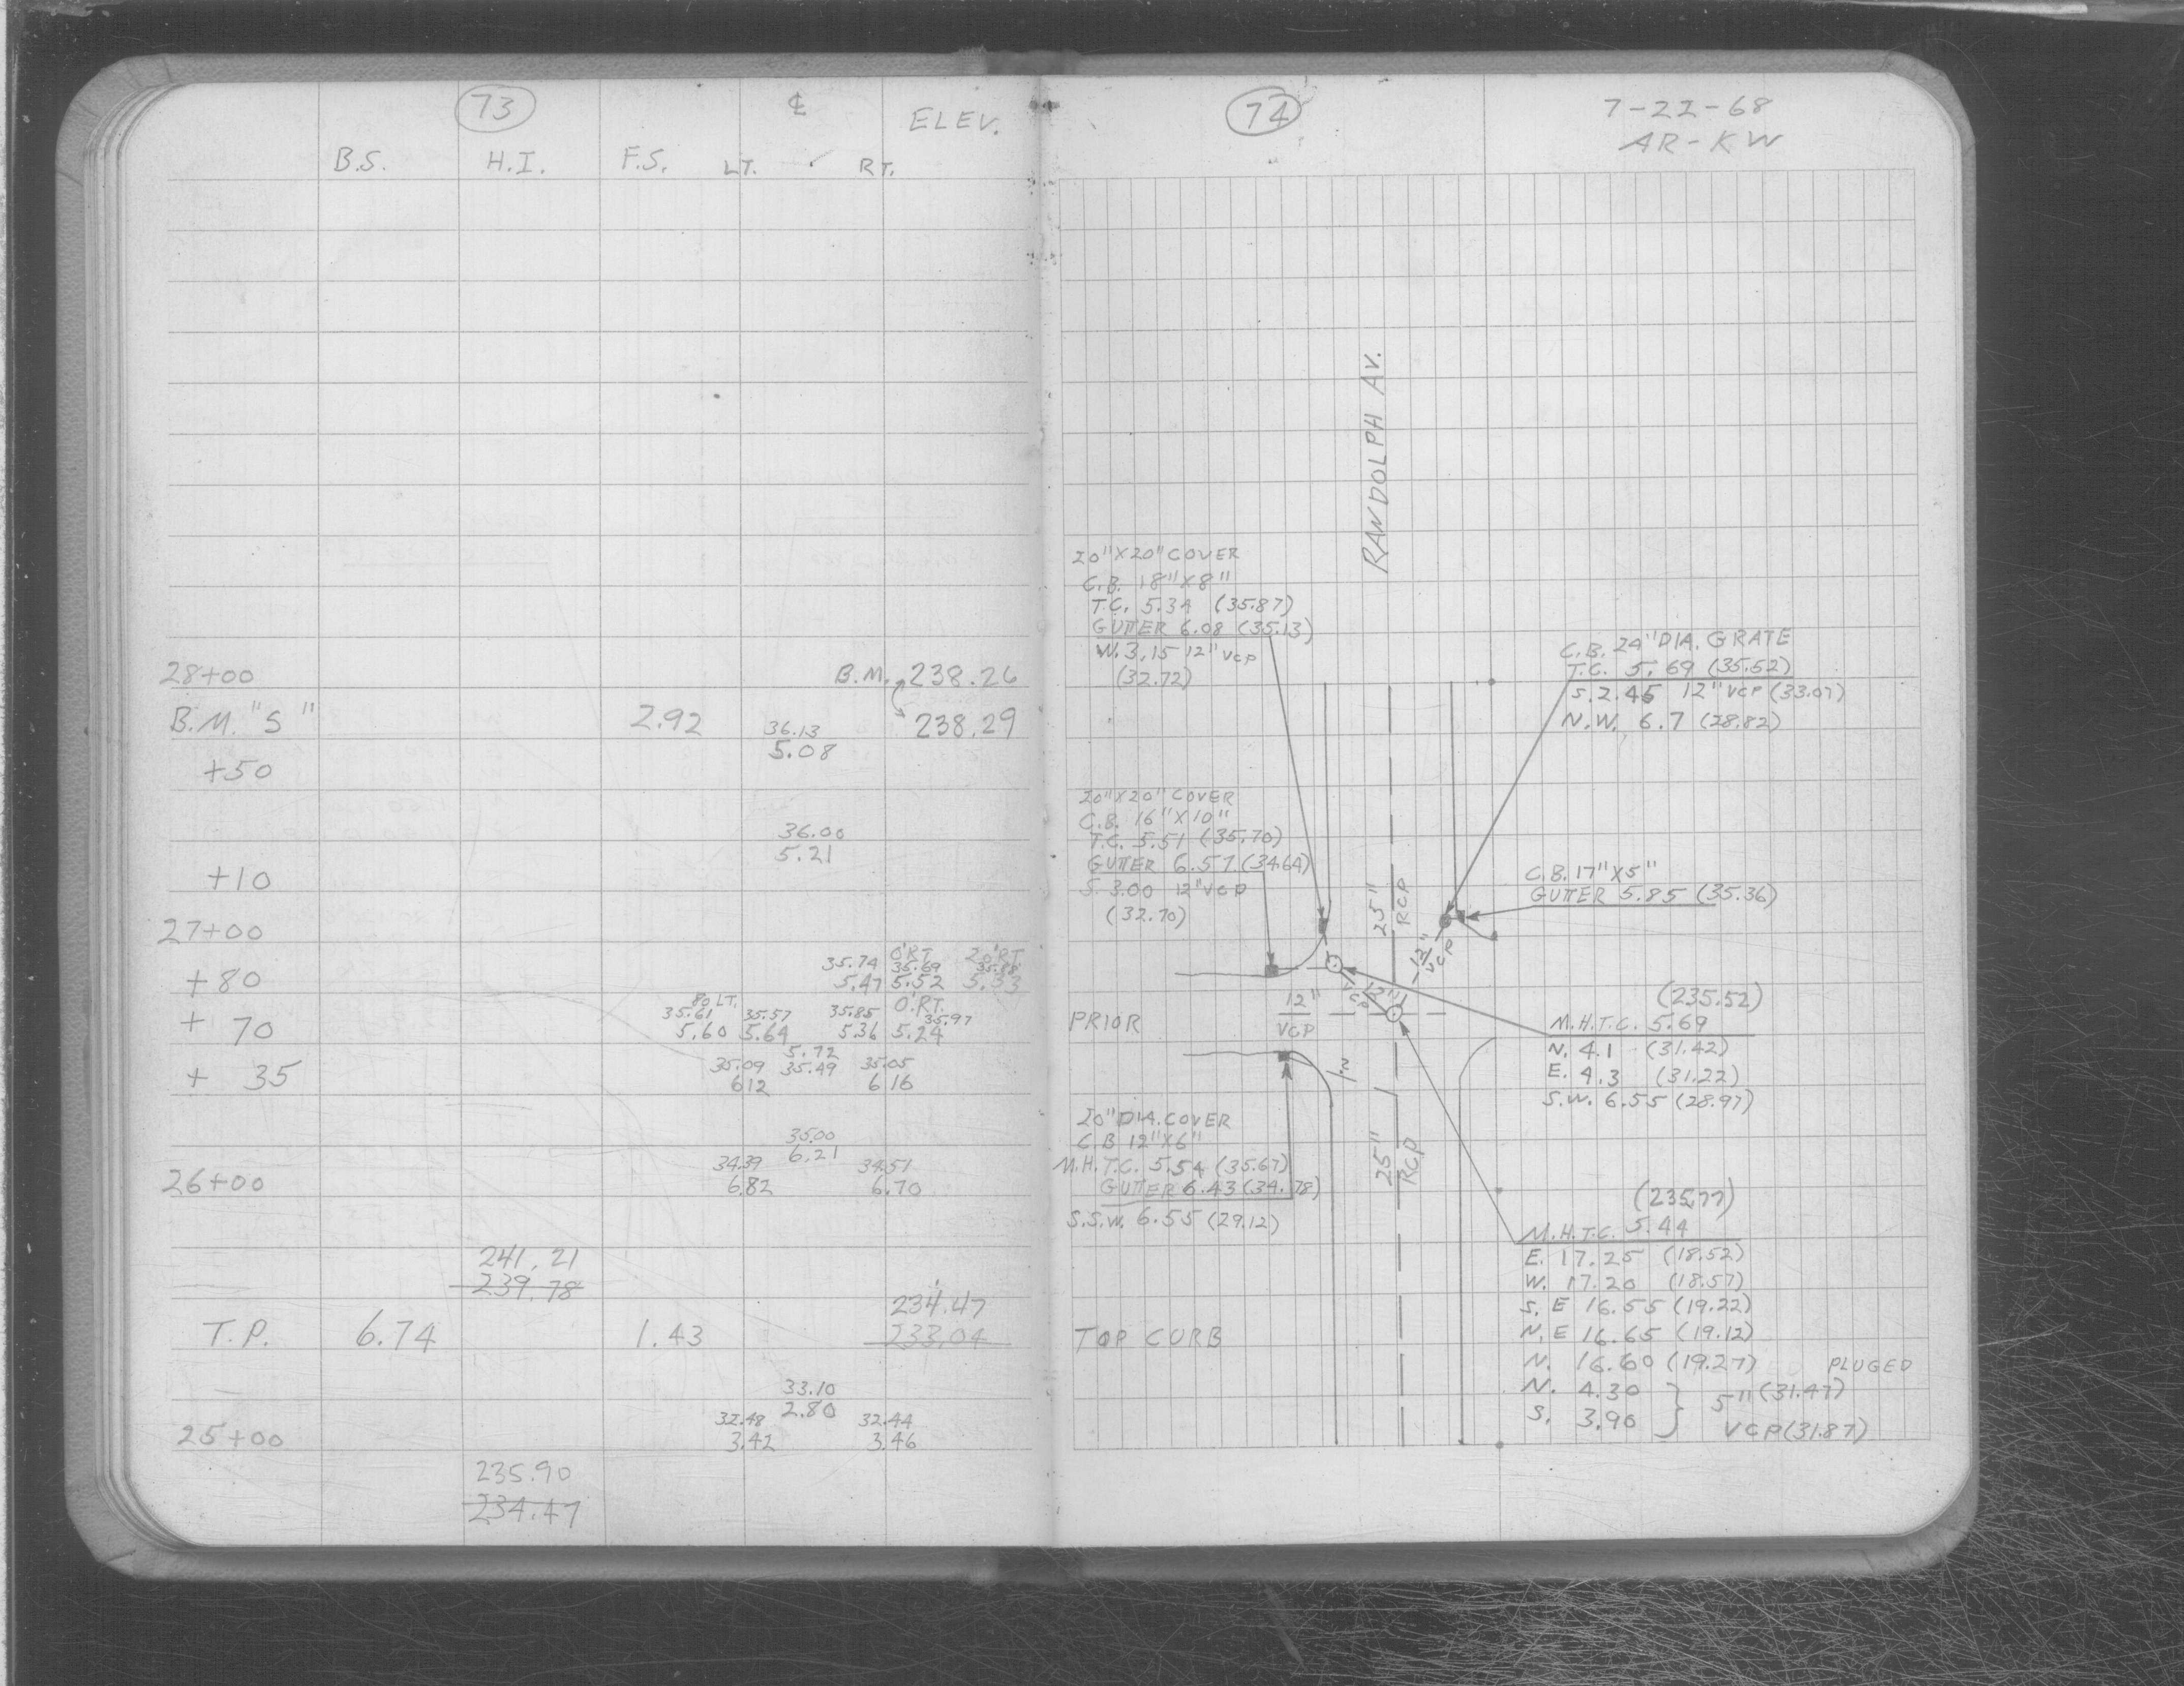 73
℄
ELEV.
B.S. H.I. F.S. LT. ✓ RT.
28+00 B.M. 238.26
B.M. "S" 2.92 36.13 238.29
5.08
+50
36.00
5.21
+10
27+00
0'RT. 20'RT.
35.74 35.69 35.88
+80 5.47 5.52 5.33
80 LT. 0'RT.
35.61 35.57 35.85 35.97
+ 70 5.60 5.64 5.36 5.24
5.72
35.09 35.49 35.05
+ 35 6.12 6.16
35.00
34.39 6.21 34.51
26+00 6.82 6.70
241.21
239.78
234.47
T.P. 6.74 1.43 233.04
33.10
32.48 2.80 32.44
25+00 3.42 3.46
235.90
234.47
74
7-22-68
AR-KW
RANDOLPH AV.
20"X20" COVER
C.B. 18"X8"
T.C. 5.34 (35.87)
GUTTER 6.08 (35.13)
W. 3.15 12" VCP
(32.72)
C.B. 24" DIA. GRATE
T.C. 5.69 (35.52)
S. 2.45 12" VCP (33.07)
N.W. 6.7 (28.82)
20"X20" COVER
C.B. 16"X10"
T.C. 5.51 (35.70)
GUTTER 6.57 (34.64)
S. 3.00 12" VCP
(32.70)
C.B. 17"X5"
GUTTER 5.85 (35.36)
25"
RCP
12"
VCP
12"
VCP
PRIOR
12"
VCP
12
(235.52)
M.H.T.C. 5.69
N. 4.1 (31.42)
E. 4.3 (31.22)
S.W. 6.55 (28.97)
20" DIA. COVER
C.B 12"X6"
M.H. T.C. 5.54 (35.67)
GUTTER 6.43 (34.78)
S.S.W. 6.55 (29.12)
25"
RCP
(235.77)
M.H.T.C. 5.44
E. 17.25 (18.52)
W. 17.20 (18.57)
S. E 16.55 (19.22)
N. E 16.65 (19.12)
N. 16.60 (19.27) PLUGED
N. 4.30 } 5" (31.47)
S. 3.90 VCP (31.87)
TOP CURB